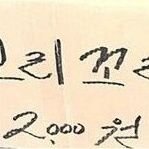 리 꼬
2,000 원